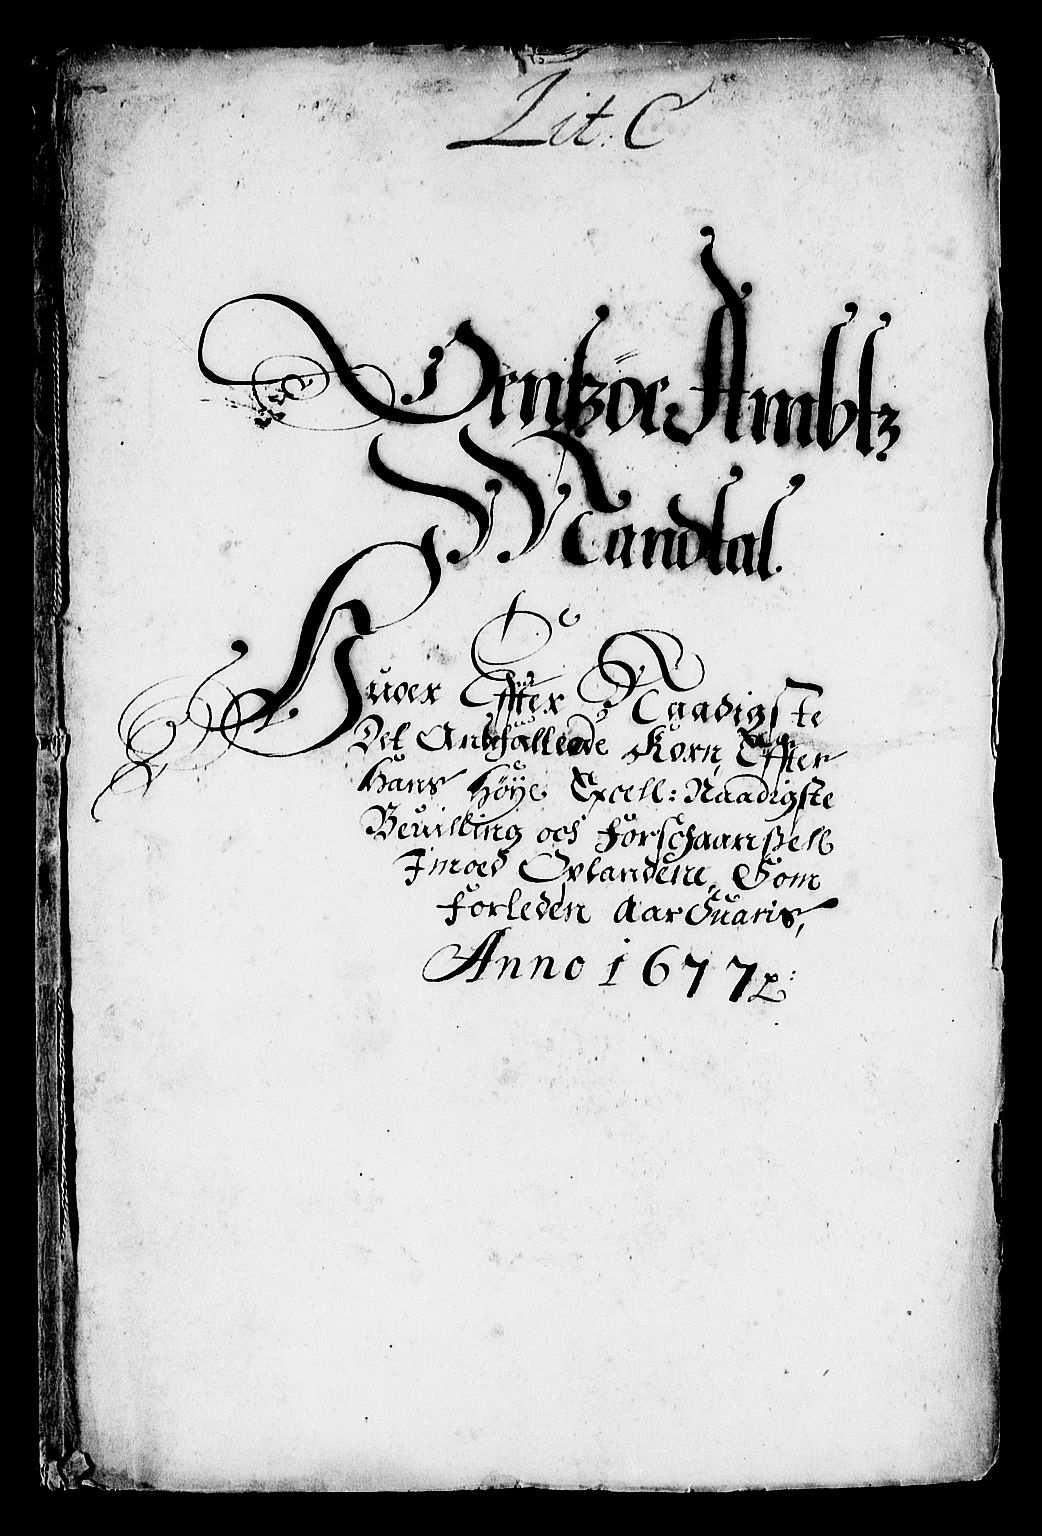 Lit: C
Wentzöe Ambtz
Mandtal.
Huoer Effter Naadigste
Det Anbefallende Korn, Effter
Hans Höÿe Excell: Naadigste
Beuilling och forschaanszell
Imoed Oplandene, Som
forleden Aar Suaris,
Anno 1677